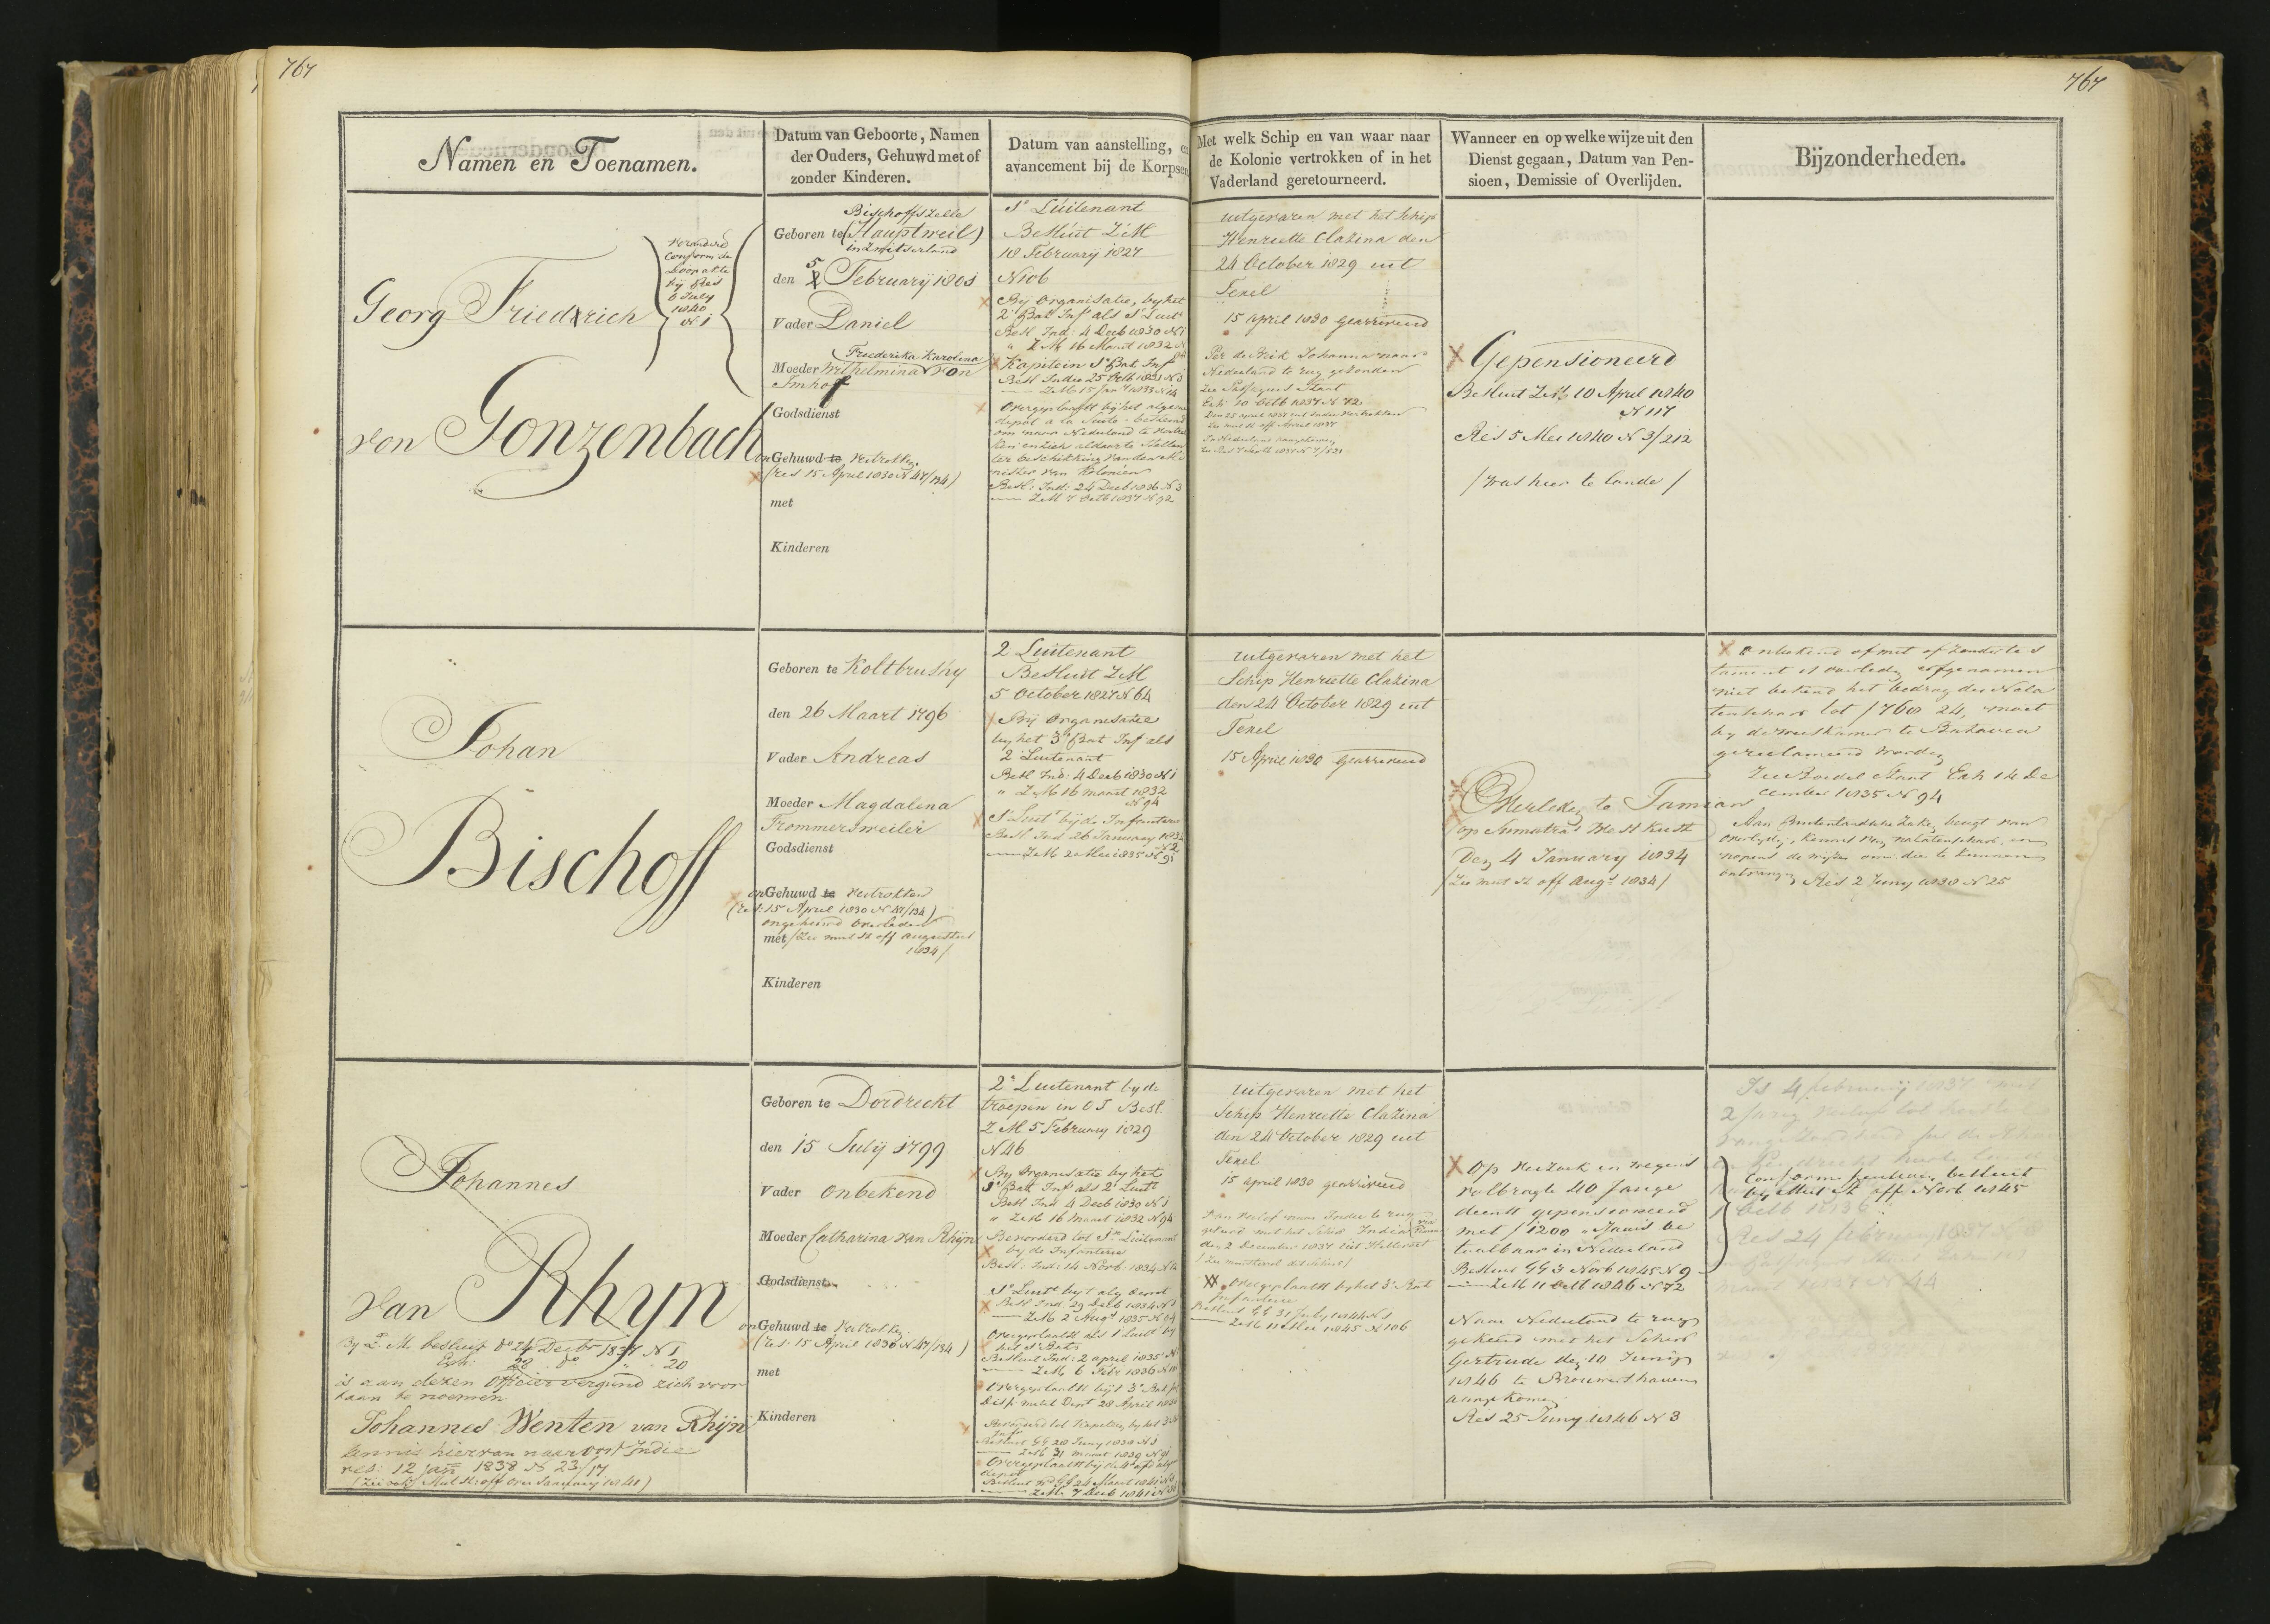 767
767
Namen en Toenamen.
Datum van Geboorte, Namen
der Ouders, Gehuwd met of
zonder Kinderen.
Datum van aanstelling, en
avancement bij de Korpsen
Met welk Schip en van waar naar
de Kolonie vertrokken of in het
Vaderland geretourneerd.
Wanneer en op welke wijze uit den
Dienst gegaan, Datum van Pen-
sioen, Demissie of Overlijden.
Bijzonderheden.
Georg Friedrich
von Gonzenbach
veranderd
conform de
Doopakte
bij Res
6 July
1840
N 1
Bischoffszelle
Geboren te (Hauptweil)
in Zwitserland
den 5 February 1801
Vader Daniel
Frederika Karolina
Moeder Wilhelmina von
Imhoff
Godsdienst
on Gehuwd te vertrokken
(res 15 April 1830 N 47/134)
met
Kinderen
1e Luitenant
Besluit Z.M
18 February 1827
N 106
Bij Organisatie, by het
2e Bat Inf als 1e Luit
Besl Ind: 4 Decb 1830 N 1
" Z.M 16 Maart 1832 N
Kapitein 1e Bat Inf
Besl Indie 25 Octb 1831 N 3
Z.M 15 Jany 1833 N 14
Overgeplaatst by het algem
depot a la Suite - bestemd
om naar Nederland te vertrek
ken en zich aldaar te stellen
ter beschikking van den Mi
nister van Kolonien
Besl: Ind: 24 Decb 1836 N 3
Z.M 7 Octb 1837 N 92
uitgevaren met het Schip
Henriette Clazina den
24 October 1829 uit
Texel
15 April 1830 gearriveerd
Per de Brik Johanna naar
Nederland te rug gezonden
Zie Passagiers Staat
Exh: 10 Octb 1837 N 72
Den 25 april 1837 uit Indie vertrokken
Zie mut st off April 1837
In Nederland aangekomen
Gepensioneerd
Besluit Z.M 10 April 1840
N 117
Res 5 Mei 1840 N 3/212
/ was hier te lande /
Johan
Bischoff
Geboren te Koltbrushy
den 26 Maart 1796
Vader Andreas
Moeder Magdalena
Frommersweiler
Godsdienst
on Gehuwd te vertrokken
(res: 15 April 1830 N 47/134)
ongehuwd overleden
met /Zie mut st off augustus
1834/
Kinderen
2 Luitenant
Besluit Z.M
5 October 1827 N 64
Bij Organisatie
by het 3e Bat Inf als
2 Luitenant
Besl Ind: 4 Decb 1830 N 1
" Z.M 16 maart 1832
N 94
1e Luit bij de Infanterie
Besl Ind 26 January 183
N 2
Z.M 2 Mei 1835 N 91
uitgevaren met het
Schip Henriette Clazina
den 24 October 1829 uit
Texel
15 April 1830 gearriveerd
Overleden te Tamian
op Sumatra's West Kust
Den 4 January 1834
/Zie mut st off Augs 1834/
onbekend of met of zonder tes
tament is overleden erfgenamen
niet bekend het bedrag der Nala
tenschap tot f 760 24, moet
by de weeskamer te Batavia
gereclameerd worden
Zie Boedel Staat Exh 14 De
cember 1835 N 94
Aan Buitenlandsche Zaken, berigt van
overlyden, kennis van nalatenschap, en
nopens de wijze om die te kunnen
ontvangen Res 2 Juny 1838 N 25
Johannes
van Rhyn
By Z. M. besluit do 24 Decbr 1837 N 1
Exh: 28 do " 20
is aan dezen Officier vergund zich voor
taan te noemen
Johannes Wenten van Rhijn
kennis hiervan naar Oost Indie
res: 12 Jan 1838 N 23/17
(Zie ook Mut St: off over January 1841)
Geboren te Dordrecht
den 15 July 1799
Vader onbekend
Moeder Catharina van Rhijn
Godsdienst
on Gehuwd te vertrokken
(res: 15 April 1830 N 47/134)
met
Kinderen
2e Luitenant by de
troepen in O I Besl.
Z M 5 February 1829
N 46
By Organisatie by het
1e Bat Inf als 2e Luit
Besl Ind 4 Decb 1830 N 1
" Z.M 16 Maart 1832 N 94
Bevorderd tot 1e Luitenant
by de Infanterie
Besl: Ind: 14 Novb: 1834 N
1e Luit by't alg Depot
Besl Ind 29 Decb 1834 N 1
Z.M 2 Augs 1835 N 94
Overgeplaatst als 1 Luit by
het 1e Bat
Besluit Ind: 2 april 1835 N
Z.M 6 Febr 1836 N
Overgeplaatst by 't 3e Bat
Bevorderd tot Kapitein by het 3e
Inf
Besluit GG 28 Juny 1838 N 1
Z.M 31 maart 1839 N 91
Overgeplaatst bij de 4e afd alg
depot
Besluit GG 24 Maart 1841 N
Z.M 7 Decb 1841 N
uitgevaren met het
Schip Henriette Clazina
den 24 October 1829 uit
Texel
15 april 1830 gearriveerd
Van verlof naar Indie te rug
gekeerd met het Schip India
den 2 December 1837 uit Hellevoet
Overgeplaatst by het 3e Bat
Infanterie
Besluit GG 31 July 1844 N 1
Z.M 11 Mei 1845 N 106
Op verzoek en wegens
volbragte 20 jarige
dienst gepensioneerd
met f 1200 's Jaars be
taalbaar in Nederland
Besluit GG 3 Novb 1845 N 9
Z.M 11 Octb 1846 N 72
Naar Nederland te rug
gekeerd met het Schip
Gertrude den 10 Junij
1846 te Brouwershaven
aangekomen
Res 25 Juny 1846 N 3
Is 4 february 1837 met
2 jarig verlof tot
conform besluit
by Mut St off Novb 1845
Octb 1836
Res 24 februari 1837